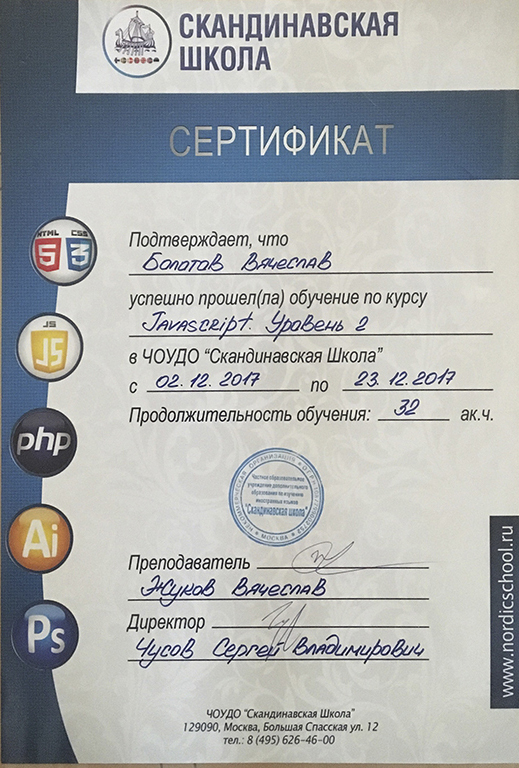 СКАНДИНАВСКАЯ
ШКОЛА
СЕРТИФИКАТ
HTML CSS
5 3
JS
JS
php
Ai
Ps
Подтверждает, что
Болатов Вячеслав
успешно прошел(ла) обучение по курсу
Javascript. Уровень 2
в ЧОУДО "Скандинавская Школа"
с 02.12.2017 по 23.12.2017
Продолжительность обучения: 32 ак.ч.
НЕКОММЕРЧЕСКАЯ ОРГАНИЗАЦИЯ
Частное образовательное
учреждение дополнительного
образования по изучению
иностранных языков
"Скандинавская школа"
МОСКВА
Преподаватель
Жуков Вячеслав
Директор
Чусов Сергей Владимирович
www.nordicschool.ru
ЧОУДО "Скандинавская Школа"
129090, Москва, Большая Спасская ул. 12
тел.: 8 (495) 626-46-00